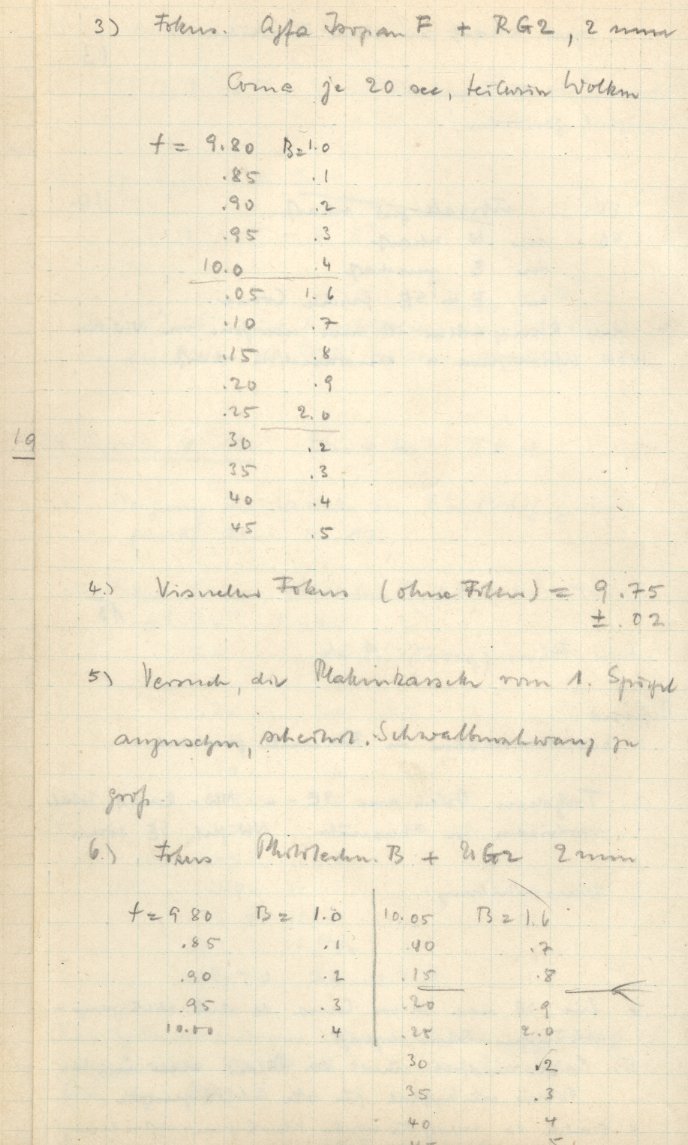 3) Fokus. Agfa Isopan F + RG2, 2 mm
Coma je 20 sec, teilweise Wolken
f = 9.80 B=1.0
.85 .1
.90 .2
.95 .3
10.0 .4
.05 1.6
.10 .7
.15 .8
.20 .9
.25 2.0
19
30 .2
35 .3
40 .4
45 .5
4.) Visueller Fokus (ohne Filter) = 9.75
± .02
5) Versuch, die Plattenkassette vom 1. Spiegel
anzusetzen, scheitert. Schwalbenschwanz zu
groß.
6.) Fokus Phototechn. B + UG2 2 mm
f = 9 80 B = 1.0 10.05 B = 1.6
.85 .1 .10 .7
.90 .2 .15 .8
.95 .3 .20 .9
10.00 .4 .25 2.0
30 .2
35 .3
40 4
45 5